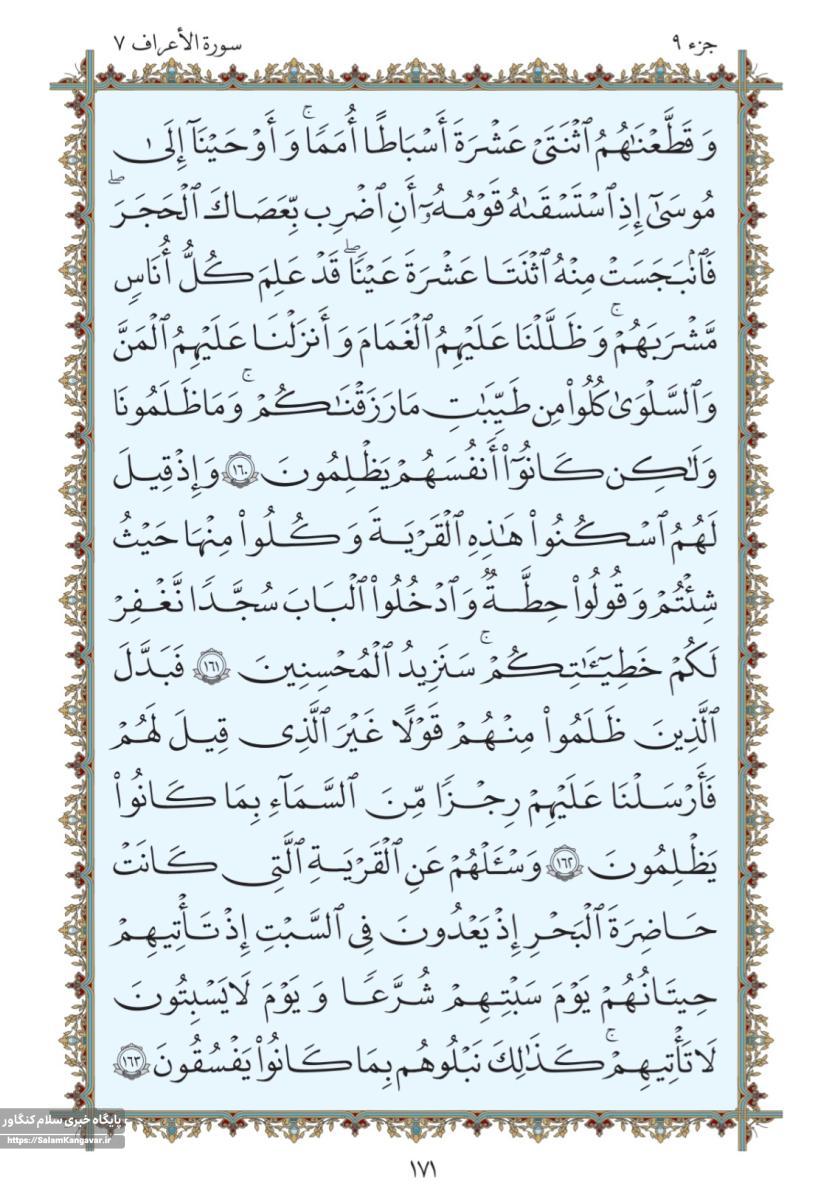 جزء ٩
سورة الأعراف ٧
وَقَطَّعْنَٰهُمُ ٱثْنَتَىْ عَشْرَةَ أَسْبَاطًا أُمَمًاۚ وَأَوْحَيْنَآ إِلَىٰ
مُوسَىٰٓ إِذِ ٱسْتَسْقَىٰهُ قَوْمُهُۥٓ أَنِ ٱضْرِب بِّعَصَاكَ ٱلْحَجَرَۖ
فَٱنۢبَجَسَتْ مِنْهُ ٱثْنَتَا عَشْرَةَ عَيْنًاۖ قَدْ عَلِمَ كُلُّ أُنَاسٍ
مَّشْرَبَهُمْۚ وَظَلَّلْنَا عَلَيْهِمُ ٱلْغَمَامَ وَأَنزَلْنَا عَلَيْهِمُ ٱلْمَنَّ
وَٱلسَّلْوَىٰ كُلُوا۟ مِن طَيِّبَٰتِ مَا رَزَقْنَٰكُمْۚ وَمَا ظَلَمُونَا
وَلَٰكِن كَانُوٓا۟ أَنفُسَهُمْ يَظْلِمُونَ ١٦٠ وَإِذْ قِيلَ
لَهُمُ ٱسْكُنُوا۟ هَٰذِهِ ٱلْقَرْيَةَ وَكُلُوا۟ مِنْهَا حَيْثُ
شِئْتُمْ وَقُولُوا۟ حِطَّةٌ وَٱدْخُلُوا۟ ٱلْبَابَ سُجَّدًا نَّغْفِرْ
لَكُمْ خَطِيٓـَٰٔتِكُمْۚ سَنَزِيدُ ٱلْمُحْسِنِينَ ١٦١ فَبَدَّلَ
ٱلَّذِينَ ظَلَمُوا۟ مِنْهُمْ قَوْلًا غَيْرَ ٱلَّذِى قِيلَ لَهُمْ
فَأَرْسَلْنَا عَلَيْهِمْ رِجْزًا مِّنَ ٱلسَّمَآءِ بِمَا كَانُوا۟
يَظْلِمُونَ ١٦٢ وَسْـَٔلْهُمْ عَنِ ٱلْقَرْيَةِ ٱلَّتِى كَانَتْ
حَاضِرَةَ ٱلْبَحْرِ إِذْ يَعْدُونَ فِى ٱلسَّبْتِ إِذْ تَأْتِيهِمْ
حِيتَانُهُمْ يَوْمَ سَبْتِهِمْ شُرَّعًا وَيَوْمَ لَا يَسْبِتُونَ
لَا تَأْتِيهِمْۚ كَذَٰلِكَ نَبْلُوهُم بِمَا كَانُوا۟ يَفْسُقُونَ ١٦٣
پایگاه خبری سلام کنگاور
https://SalamKangavar.ir
١٧١